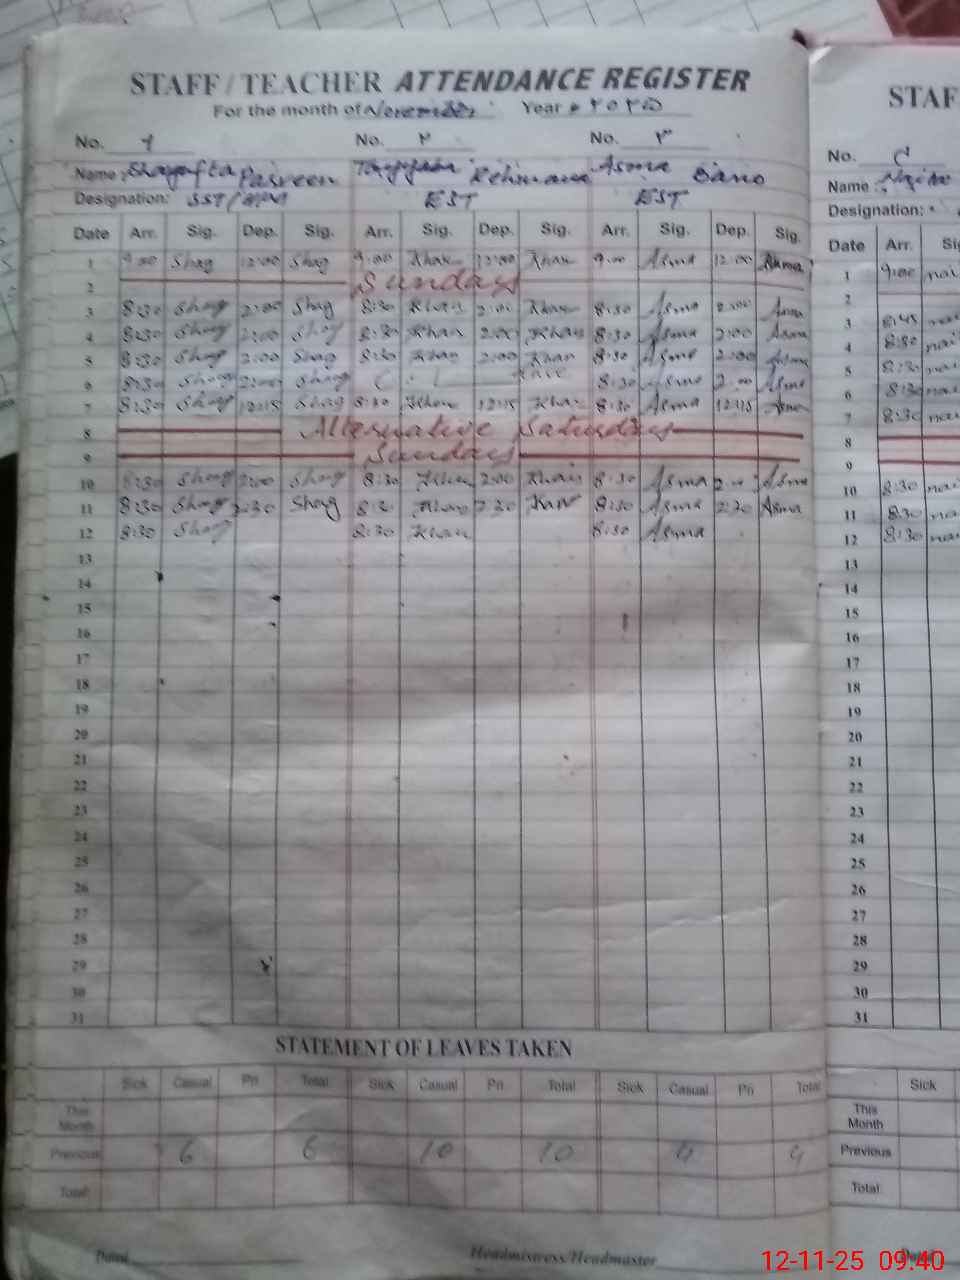 STAFF / TEACHER ATTENDANCE REGISTER
For the month of November Year ۲۰۲۵
No. ۱ No. ۲ No. ۳
Name: Shagufta Pasreen Rehmana Asma Bano
Designation: SST/ EST EST
Date Arr. Sig. Dep. Sig. Arr. Sig. Dep. Sig. Arr. Sig. Dep. Sig.
1 9:00 Shag 12:00 Shag 9:00 Khan 12:00 Khan 9:00 Asma 12:00 Asma
2 Sundays
3 8:30 Shag 2:00 Shag 8:30 Khan 2:00 Khan 8:30 Asma 2:00 Asma
4 8:30 Shag 2:00 Shag 8:30 Khan 2:00 Khan 8:30 Asma 2:00 Asma
5 8:30 Shag 2:00 Shag 8:30 Khan 2:00 Khan 8:30 Asma 2:00 Asma
6 8:30 Shag 2:00 Shag 8:30 Asma 2:00 Asma
7 8:30 Shag 12:15 Shag 8:30 Khan 12:15 Khan 8:30 Asma 12:15 Asma
8 Alternative Saturdays
9 Sundays
10 8:30 Shag 2:00 Shag 8:30 Khan 2:00 Khan 8:30 Asma 2:00 Asma
11 8:30 Shag 2:30 Shag 8:30 Khan 2:30 Kan 8:30 Asma 2:30 Asma
12 8:30 Shag 8:30 Khan 8:30 Asma
13
14
15
16
17
18
19
20
21
22
23
24
25
26
27
28
29
30
31
STATEMENT OF LEAVES TAKEN
Sick Casual Pri Total Sick Casual Pri Total Sick Casual Pri Total
This Month
Previous 6 6 10 10 4 4
Total
Dated Headmistress/Headmaster
STAF
No.
Name:
Designation:
Date Arr.
1 9:00
2
3 8:45
4 8:30
5 8:30
6 8:30
7 8:30
8
9
10 8:30
11 8:30
12 8:30
13
14
15
16
17
18
19
20
21
22
23
24
25
26
27
28
29
30
31
Sick
This Month
Previous
Total
12-11-25 09:40